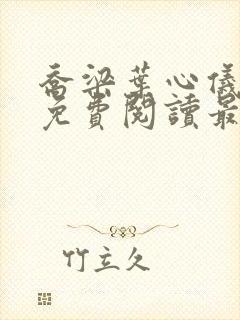 喬梁葉心儀
免費閱讀最
竹立久